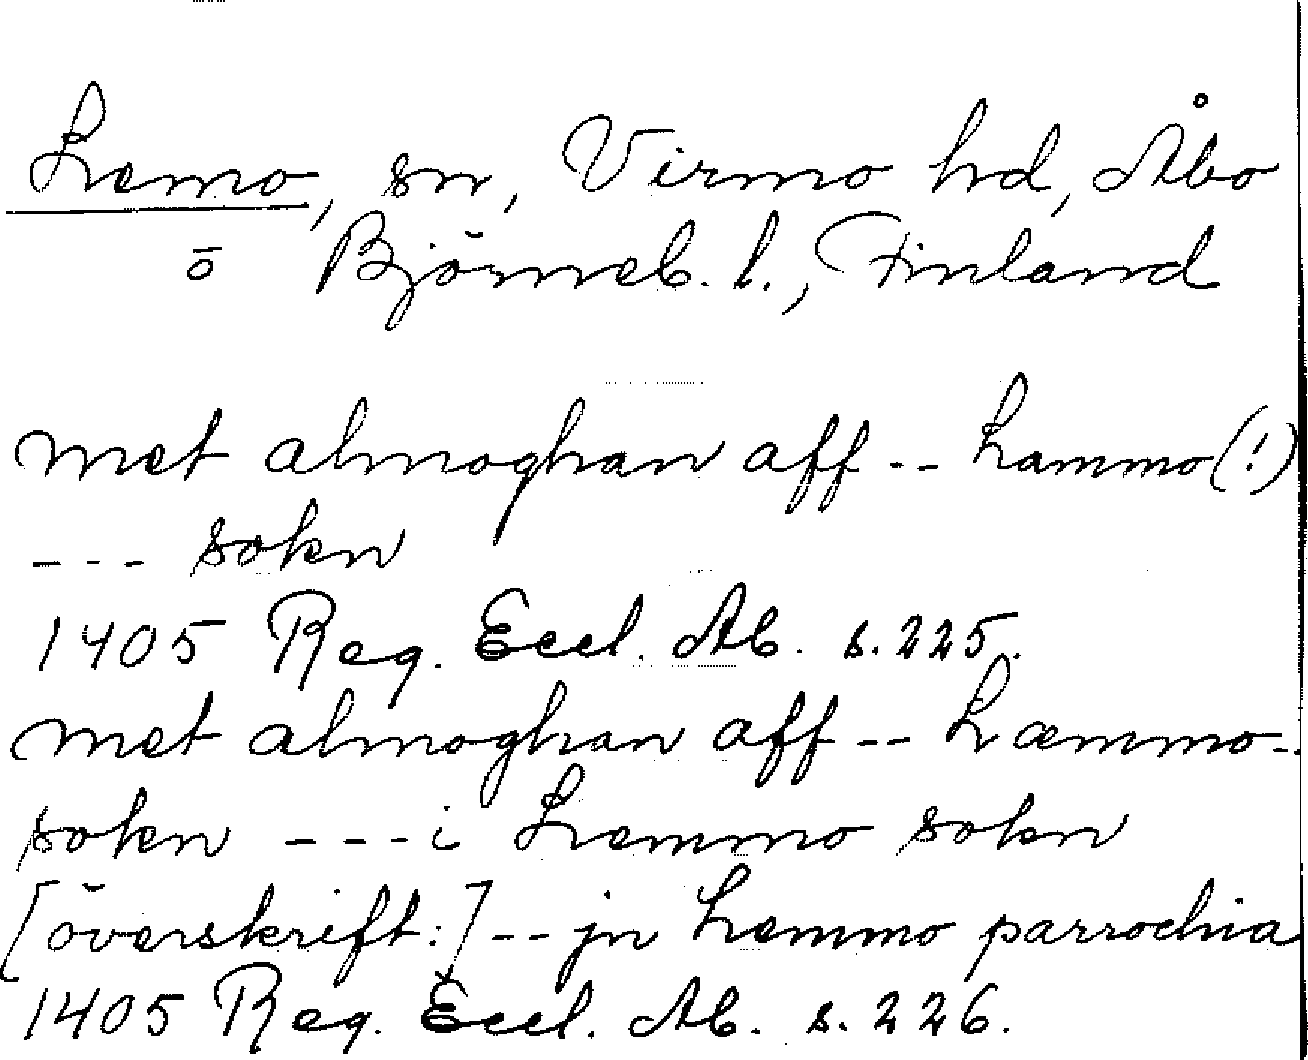 Lemo, sn, Virmo hd, Åbo
o Björneb. l., Finland
met almoghan aff -- Lammo (!)
--- sokn
1405 Reg. Eccl. Ab. s. 225.
met almoghan aff -- Læmmo--
sokn --- i Lemmo sokn
[överskrift:] -- jn Lemmo parrochia
1405 Reg. Eccl. Ab. s. 226.